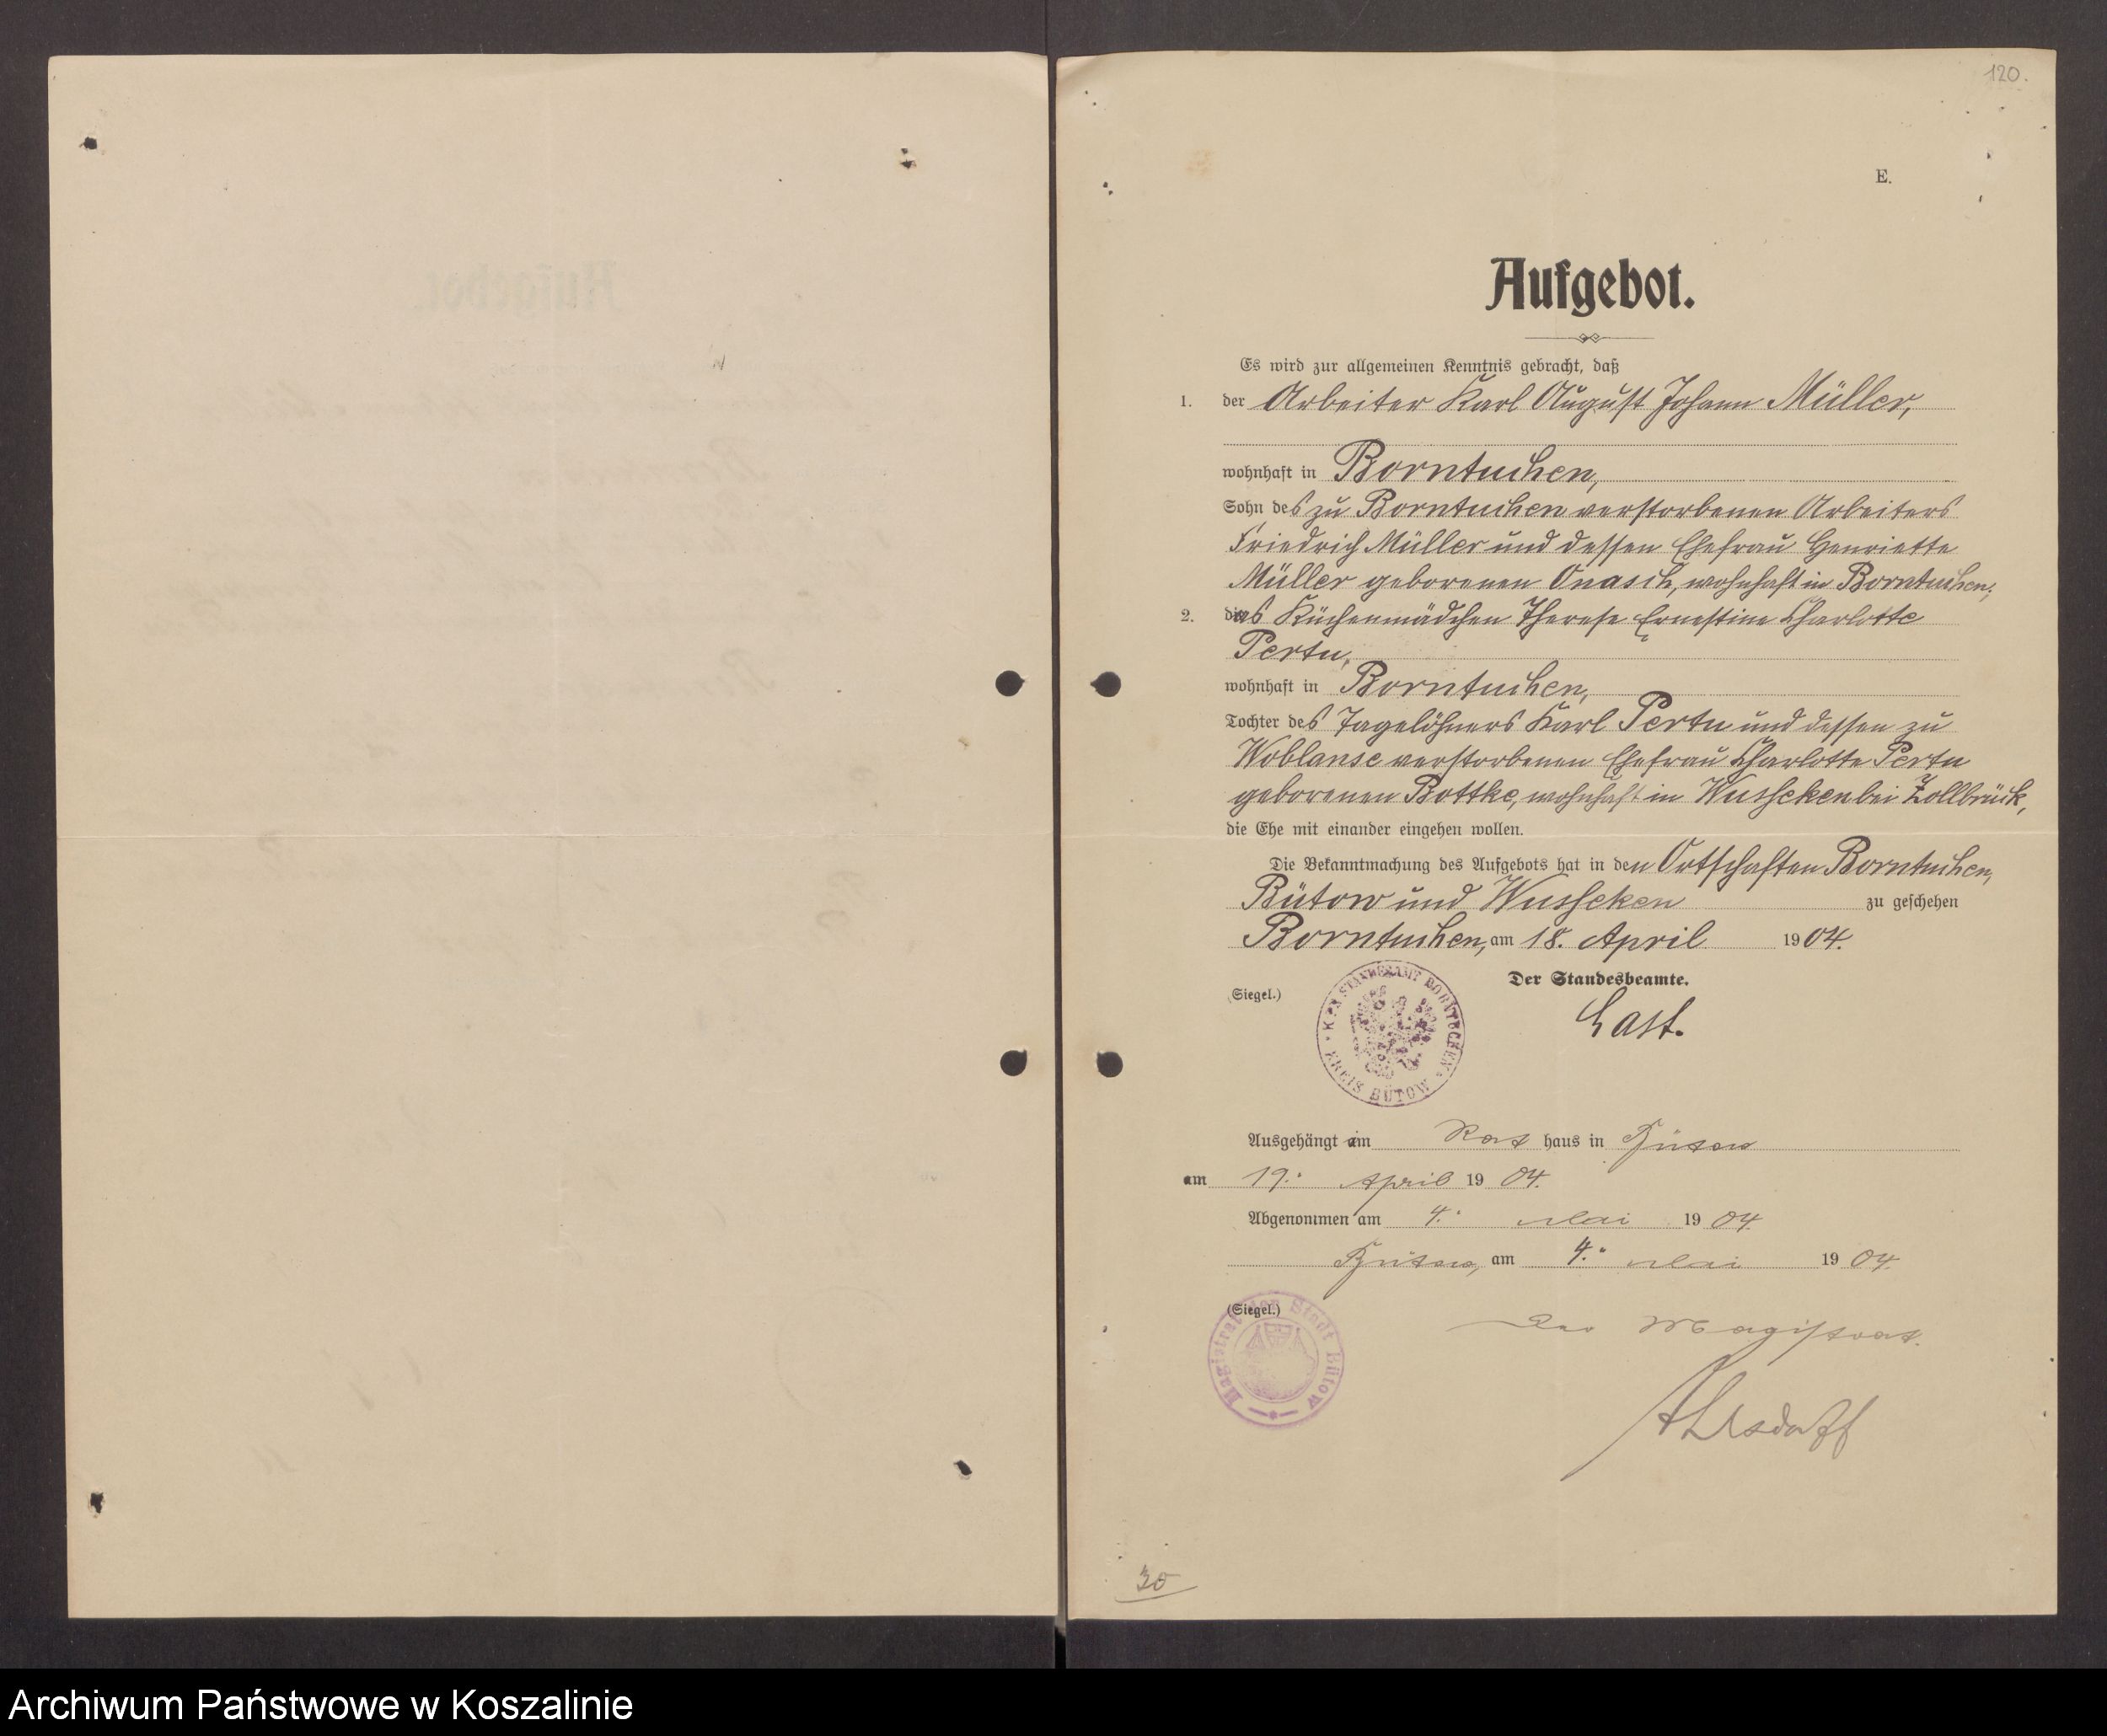 120.
E.
Aufgebot.
Es wird zur allgemeinen Kenntnis gebracht, daß
1. der Arbeiter Karl August Johann Müller,
wohnhaft in Borntuchen,
Sohn des zu Borntuchen verstorbenen Arbeiters
Friedrich Müller und dessen Ehefrau Henriette
Müller geborenen Onasch, wohnhaft in Borntuchen;
2. das Küchenmädchen Therese Ernestine Charlotte
Pertu,
wohnhaft in Borntuchen,
Tochter des Tagelöhners Karl Pertu und dessen zu
Woblanse verstorbenen Ehefrau Charlotte Pertu
geborenen Bottke, wohnhaft in Wusseken bei Zollbrück,
die Ehe mit einander eingehen wollen.
Die Bekanntmachung des Aufgebots hat in den Ortschaften Borntuchen,
Bütow und Wusseken zu geschehen
Borntuchen, am 18. April 1904.
Der Standesbeamte.
(Siegel.)
KGL. STANDESAMT BORNTUCHEN
KREIS BÜTOW
Last.
Ausgehängt im Rathaus in Bütow
am 19. April 1904.
Abgenommen am 4. Mai 1904
Bütow, am 4. Mai 1904.
(Siegel.)
Magistrat der Stadt Bütow
Der Magistrat.
30
Archiwum Państwowe w Koszalinie